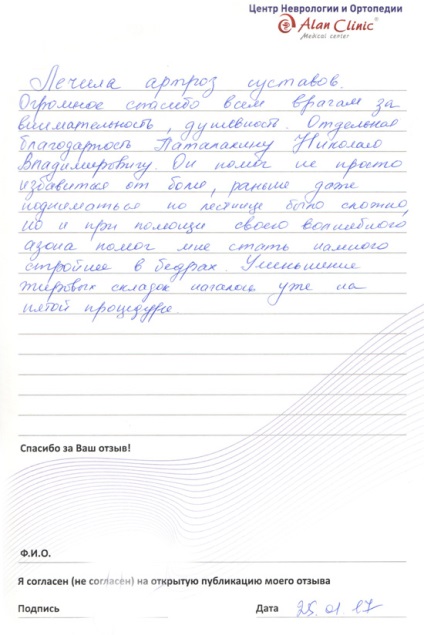 Центр Неврологии и Ортопедии
Alan Clinic
Medical center
Лечила артроз суставов.
Огромное спасибо всем врачам за
внимательность, душевность. Отдельная
благодарность Паталахину Николаю
Владимировичу. Он помог не просто
избавиться от боли, раньше даже
подниматься по лестнице было сложно,
но и при помощи своего волшебного
озона помог мне стать намного
стройнее в бедрах. Уменьшение
жировых складок началось уже на
пятой процедуре.
Спасибо за Ваш отзыв!
Ф.И.О.
Я согласен (не согласен) на открытую публикацию моего отзыва
Подпись Дата 25.01.17